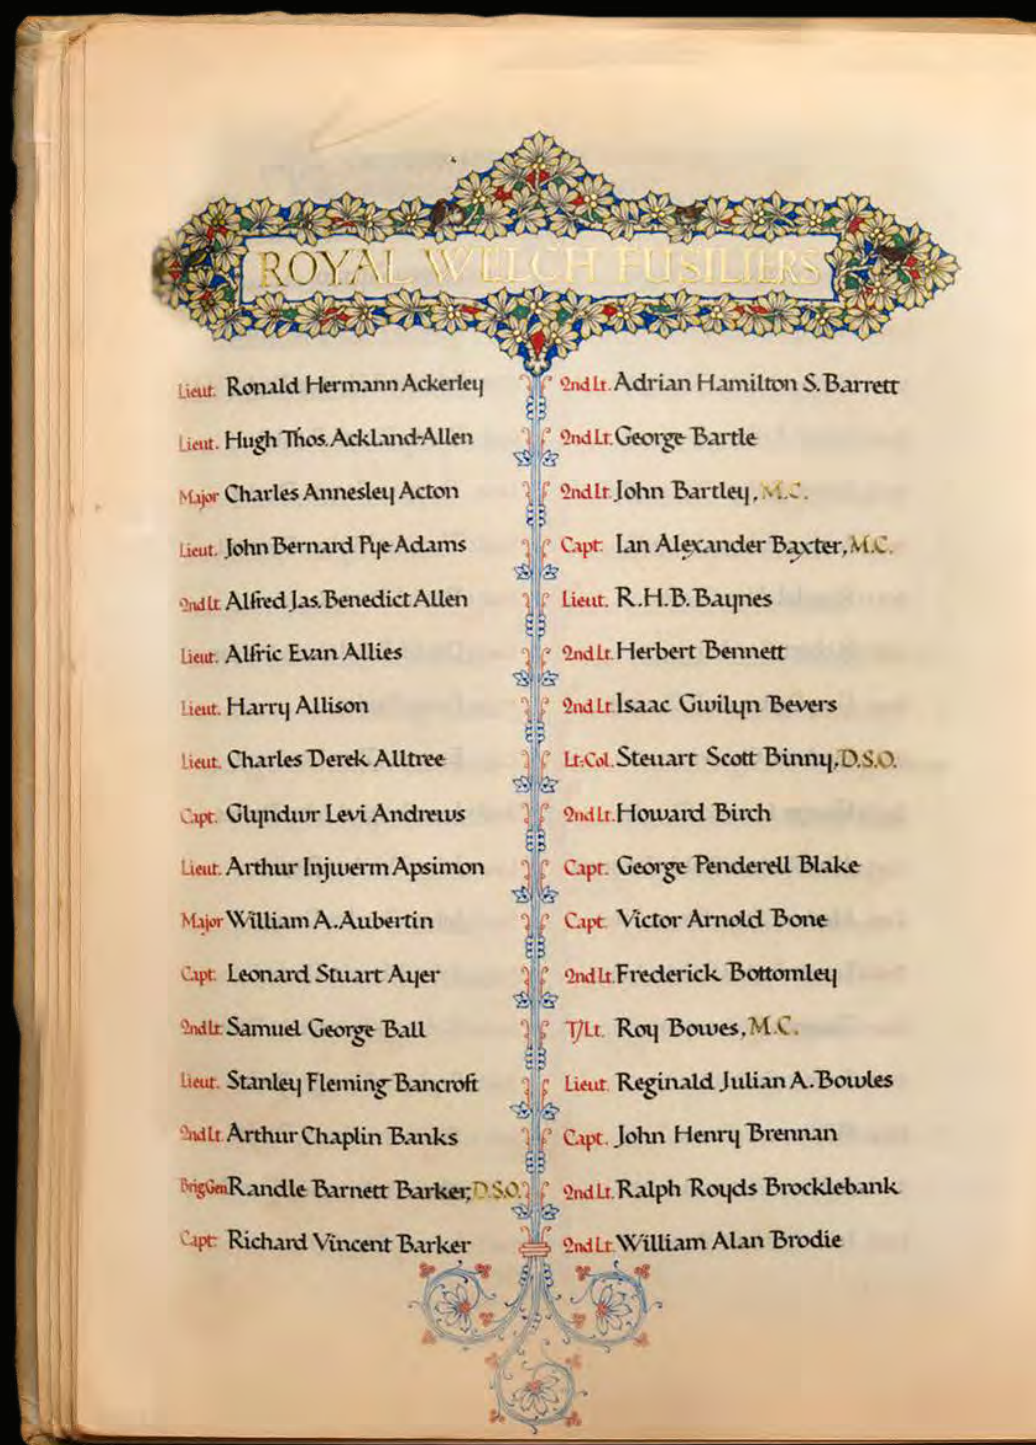 ROYAL WELCH FUSILIERS
Lieut. Ronald Hermann Ackerley
Lieut. Hugh Thos. Ackland-Allen
Major Charles Annesley Acton
Lieut. John Bernard Pye Adams
2nd Lt. Alfred Jas. Benedict Allen
Lieut. Alfric Evan Allies
Lieut. Harry Allison
Lieut. Charles Derek Alltree
Capt. Glyndwr Levi Andrews
Lieut. Arthur Injwerm Apsimon
Major William A. Aubertin
Capt. Leonard Stuart Ayer
2nd Lt. Samuel George Ball
Lieut. Stanley Fleming Bancroft
2nd Lt. Arthur Chaplin Banks
Brig Gen Randle Barnett Barker, D.S.O.
Capt. Richard Vincent Barker
2nd Lt. Adrian Hamilton S. Barrett
2nd Lt. George Bartle
2nd Lt. John Bartley, M.C.
Capt. Ian Alexander Baxter, M.C.
Lieut. R.H.B. Baynes
2nd Lt. Herbert Bennett
2nd Lt. Isaac Gwilyn Bevers
Lt:Col. Steuart Scott Binny, D.S.O.
2nd Lt. Howard Birch
Capt. George Penderell Blake
Capt. Victor Arnold Bone
2nd Lt. Frederick Bottomley
T/Lt. Roy Bowes, M.C.
Lieut. Reginald Julian A. Bowles
Capt. John Henry Brennan
2nd Lt. Ralph Royds Brocklebank
2nd Lt. William Alan Brodie